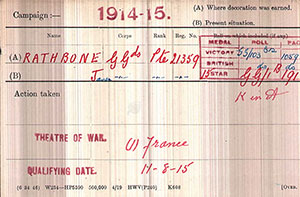 Campaign :— 1914-15.
(A) Where decoration was earned.
(B) Present situation.
Name Corps Rank Reg. No. Roll on which included (if any)
MEDAL ROLL
(A) RATHBONE G Gds Pte 21359 VICTORY
(B) BRITISH
15 STAR
Action taken K in A
THEATRE OF WAR. (1) France
QUALIFYING DATE. 11-8-15
(6 34 46) W234—HP5590 500,000 4/19 HWV(P240) K608 [OVER.